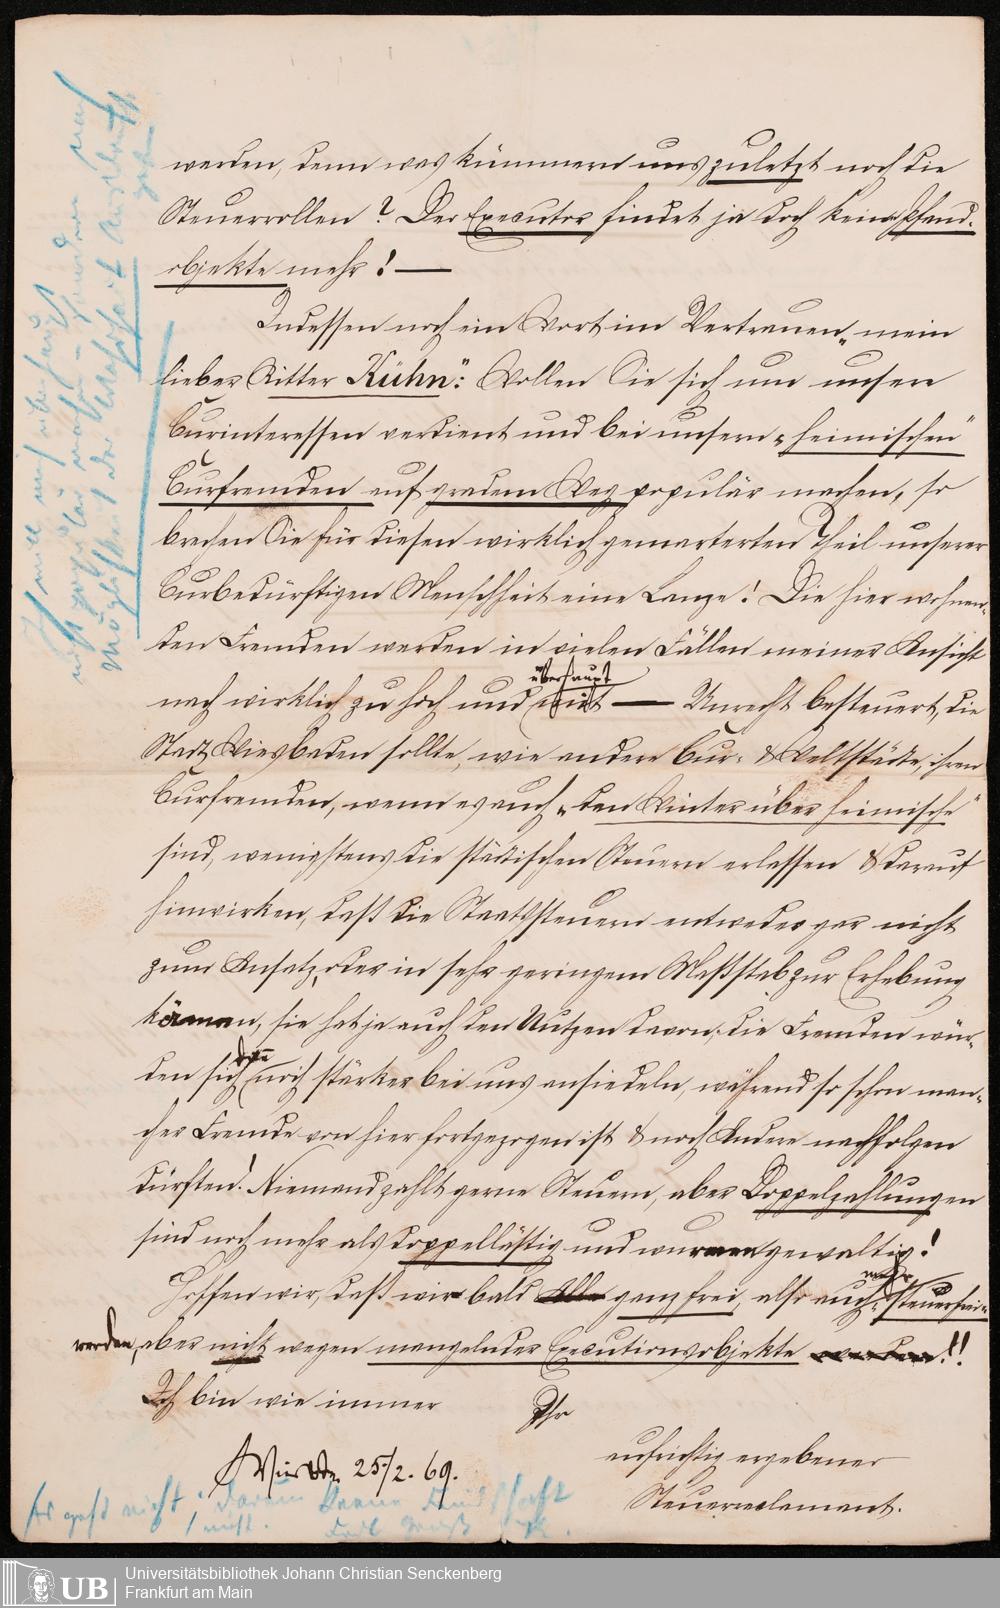 werden, denn was kümmern uns zuletzt noch die
Steuerrollen? Der Executor findet ja doch keine Pfand-
objekte mehr! —
Indessen noch ein Wort im Vertrauen „mein
lieber Ritter Kühn": Wollen Sie sich um unsere
Curinteressen verdient und bei unsern „heimischen"
Curfremden auf gradem Weg populär machen, so
brechen Sie für diesen wirklich gemarterten Theil unserer
Curbedürftigen Menschheit eine Lanze! Die hier wohnen-
den Fremden werden in vielen Fällen meiner Ansicht
überhaupt
nach wirklich zu hoch und mit — Unrecht besteuert, die
Stadt Wiesbaden sollte, wie andere Cur- & Weltstädte, ihren
Curfremden, wenn es auch „den Winter über heimische"
sind, wenigstens die städtischen Steuern erlassen & darauf
hinwirken, daß die Staatssteuern entweder gar nicht
zum Ansatz, oder in sehr geringem Maßstab zur Erhebung
kämen, sie hat ja auch den Nutzen davon; die Fremden wür-
dann
den sich noch stärker bei uns ansiedeln, während so schon man-
cher Fremde von hier fortgezogen ist & noch Andere nachfolgen
dürften! Niemand zahlt gerne Steuern, aber Doppelzahlungen
sind noch mehr als doppellästig und wurmen gewaltig!
Hoffen wir, daß wir bald Alle ganz frei, also auch
mehr
„steuerfrei"
werden, aber nicht wegen mangelnder Executionsobjekte werden!!
Ich bin wie immer
Ihr
aufrichtig ergebener
Steuerreclamant.
Wiesbdn 25/2. 69.
Ich will mich überhaupt
nicht populär machen – sondern nach
Möglichkeit der Wahrheit
Es geht nicht; darum keine Feindschaft
nicht.